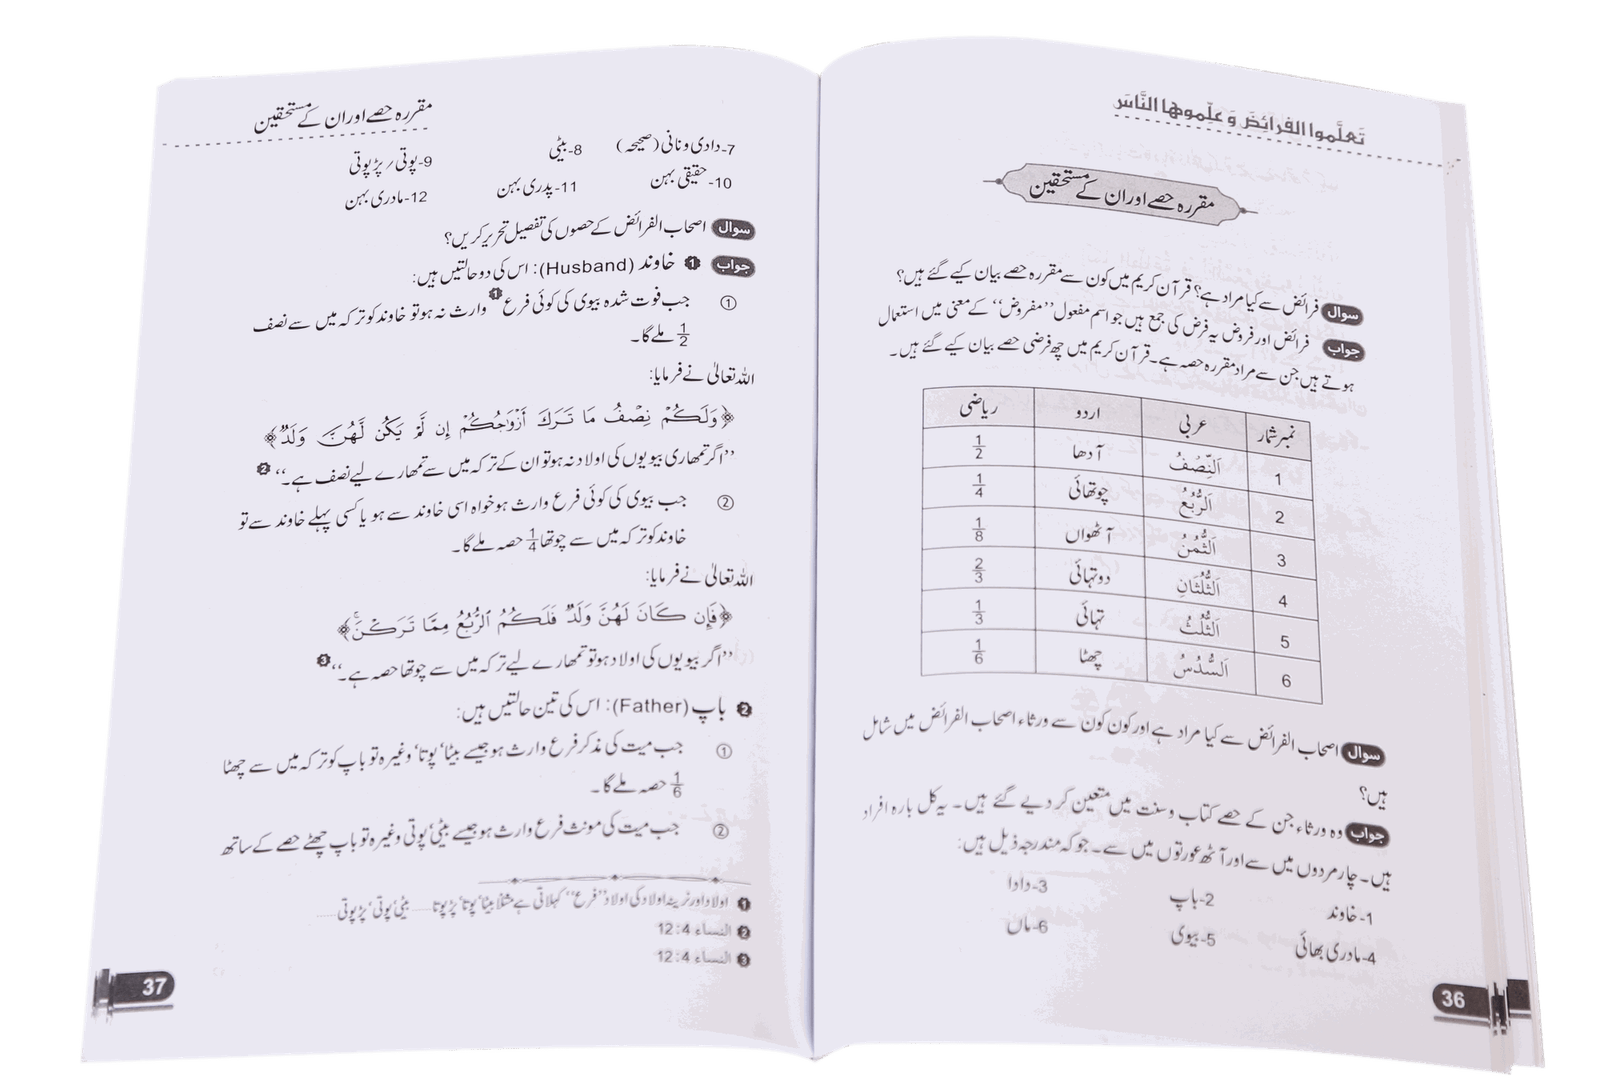 تَعلَّموا الفرائِضَ وَ علِّموها النَّاسَ
مقررہ حصے اور ان کے مستحقین
سوال فرائض سے کیا مراد ہے؟ قرآن کریم میں کون سے مقررہ حصے بیان کیے گئے ہیں؟
جواب فرائض اور فروض یہ فرض کی جمع ہیں جو اسم مفعول ”مفروض“ کے معنی میں استعمال
ہوتے ہیں جن سے مراد مقررہ حصہ ہے۔ قرآن کریم میں چھ فرضی حصے بیان کیے گئے ہیں۔
نمبر شمار عربی اردو ریاضی
1 اَلنِّصْفُ آدھا 1/2
2 اَلرُّبُعُ چوتھائی 1/4
3 اَلثُّمُنُ آٹھواں 1/8
4 اَلثُّلُثَانِ دو تہائی 2/3
5 اَلثُّلُثُ تہائی 1/3
6 اَلسُّدُسُ چھٹا 1/6
سوال اصحاب الفرائض سے کیا مراد ہے اور کون کون سے ورثاء اصحاب الفرائض میں شامل
ہیں؟
جواب وہ ورثاء جن کے حصے کتاب و سنت میں متعین کر دیے گئے ہیں۔ یہ کل بارہ افراد
ہیں۔ چار مردوں میں سے اور آٹھ عورتوں میں سے۔ جو کہ مندرجہ ذیل ہیں:
1- خاوند 2- باپ 3- دادا
4- مادری بھائی 5- بیوی 6- ماں
36
مقررہ حصے اور ان کے مستحقین
7- دادی و نانی (صحیحہ) 8- بیٹی 9- پوتی / پڑپوتی
10- حقیقی بہن 11- پدری بہن 12- مادری بہن
سوال اصحاب الفرائض کے حصوں کی تفصیل تحریر کریں؟
جواب 1 خاوند (Husband): اس کی دو حالتیں ہیں:
① جب فوت شدہ بیوی کی کوئی فرع1 وارث نہ ہو تو خاوند کو ترکہ میں سے نصف
1/2 ملے گا۔
اللہ تعالیٰ نے فرمایا:
﴿وَلَكُمْ نِصْفُ مَا تَرَكَ أَزْوَاجُكُمْ إِن لَّمْ يَكُنْ لَّهُنَّ وَلَدٌ﴾
”اگر تمھاری بیویوں کی اولاد نہ ہو تو ان کے ترکہ میں سے تمھارے لیے نصف ہے۔“2
② جب بیوی کی کوئی فرع وارث ہو خواہ اسی خاوند سے ہو یا کسی پہلے خاوند سے تو
خاوند کو ترکہ میں سے چوتھا 1/4 حصہ ملے گا۔
اللہ تعالیٰ نے فرمایا:
﴿فَإِن كَانَ لَهُنَّ وَلَدٌ فَلَكُمُ الرُّبُعُ مِمَّا تَرَكْنَ﴾
”اگر بیویوں کی اولاد ہو تو تمھارے لیے ترکہ میں سے چوتھا حصہ ہے۔“3
2 باپ (Father): اس کی تین حالتیں ہیں:
① جب میت کی مذکر فرع وارث ہو جیسے بیٹا‘ پوتا‘ وغیرہ تو باپ کو ترکہ میں سے چھٹا
1/6 حصہ ملے گا۔
② جب میت کی مونث فرع وارث ہو جیسے بیٹی‘ پوتی وغیرہ تو باپ چھٹے حصے کے ساتھ
1 اولاد اور نرینہ اولاد کی اولاد ”فرع“ کہلاتی ہے مثلاً بیٹا‘ پوتا‘ پڑپوتا...... بیٹی‘ پوتی‘ پڑپوتی......
2 النساء 4:12
3 النساء 4:12
37